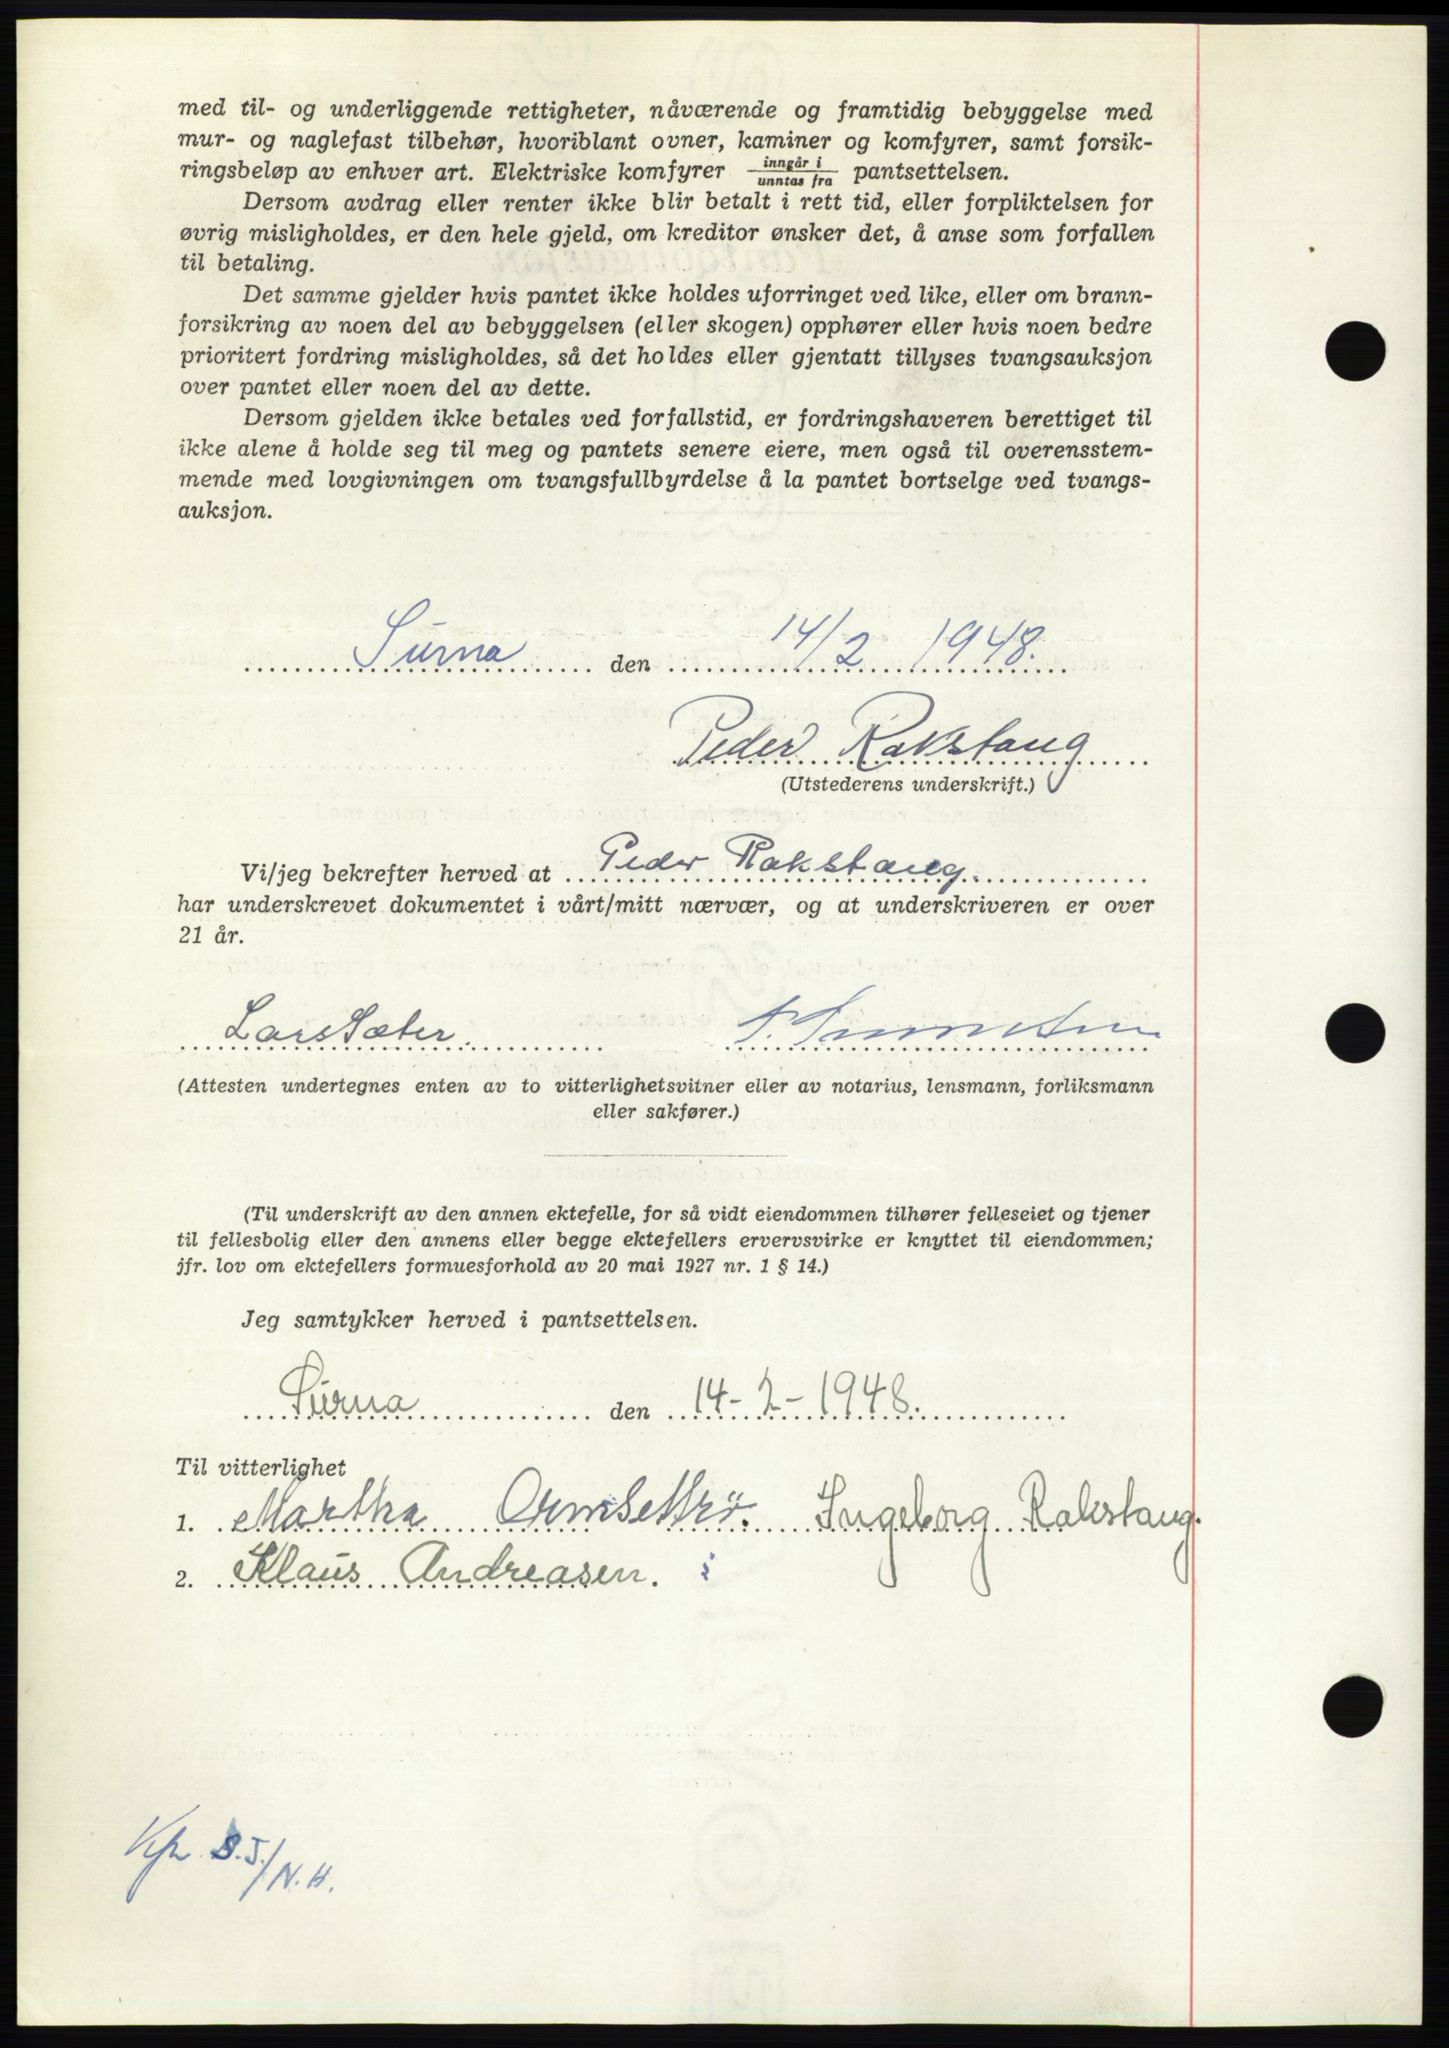 med til- og underliggende rettigheter, nåværende og framtidig bebyggelse med
mur- og naglefast tilbehør, hvoriblant ovner, kaminer og komfyrer, samt forsik-
ringsbeløp av enhver art. Elektriske komfyrer inngår i / unntas fra pantsettelsen.
Dersom avdrag eller renter ikke blir betalt i rett tid, eller forpliktelsen for
øvrig misligholdes, er den hele gjeld, om kreditor ønsker det, å anse som forfallen
til betaling.
Det samme gjelder hvis pantet ikke holdes uforringet ved like, eller om brann-
forsikring av noen del av bebyggelsen (eller skogen) opphører eller hvis noen bedre
prioritert fordring misligholdes, så det holdes eller gjentatt tillyses tvangsauksjon
over pantet eller noen del av dette.
Dersom gjelden ikke betales ved forfallstid, er fordringshaveren berettiget til
ikke alene å holde seg til meg og pantets senere eiere, men også til overensstem-
mende med lovgivningen om tvangsfullbyrdelse å la pantet bortselge ved tvangs-
auksjon.
Surna den 14/2 1948.
Peder Rakstang
(Utstederens underskrift.)
Vi/jeg bekrefter herved at Peder Rakstang
har underskrevet dokumentet i vårt/mitt nærvær, og at underskriveren er over
21 år.
Lars Sæter.
(Attesten undertegnes enten av to vitterlighetsvitner eller av notarius, lensmann, forliksmann
eller sakfører.)
(Til underskrift av den annen ektefelle, for så vidt eiendommen tilhører felleseiet og tjener
til fellesbolig eller den annens eller begge ektefellers ervervsvirke er knyttet til eiendommen;
jfr. lov om ektefellers formuesforhold av 20 mai 1927 nr. 1 § 14.)
Jeg samtykker herved i pantsettelsen.
Surna den 14-2-1948.
Til vitterlighet
1. Martha Ormsettrø. Ingeborg Rakstang.
2. Klaus Andreasen.
Kfr. S.J./N.H.